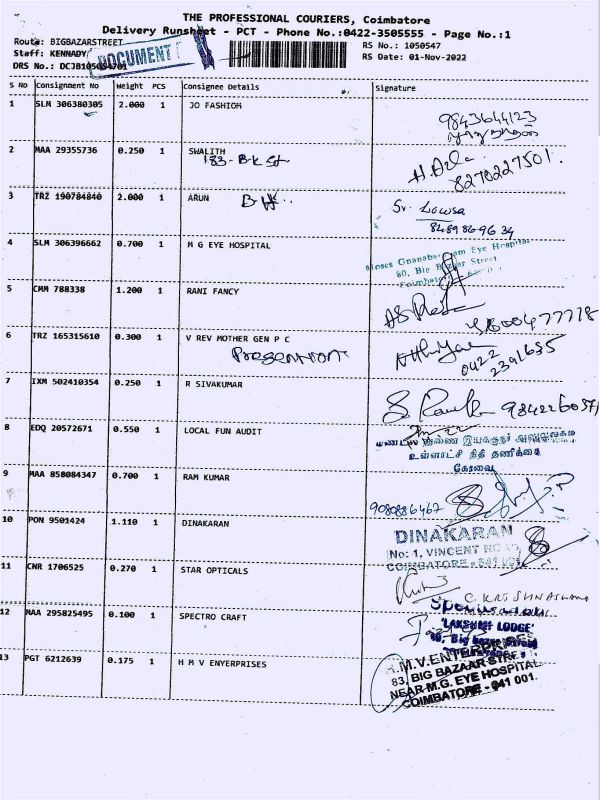 THE PROFESSIONAL COURIERS, Coimbatore
Delivery Runsheet - PCT - Phone No.:0422-3505555 - Page No.:1
Route: BIGBAZARSTREET
RS No.: 1050547
Staff: KENNADY
DOCUMENT
RS Date: 01-Nov-2022
DRS No.: DCJB105054701
S No Consignment No Weight PCS Consignee Details Signature
1 SLM 306380305 2.000 1 JO FASHIOM
9843644123
2 MAA 29355736 0.250 1 SWALITH
183-BK St
8270227501.
3 TRZ 190784840 2.000 1 ARUN
Sr. Lowsa
8489869634
4 SLM 306396662 0.700 1 M G EYE HOSPITAL
Eye Hospital
80, Big Bazaar Street
5 CMM 788338 1.200 1 RANI FANCY
6 TRZ 165315610 0.300 1 V REV MOTHER GEN P C
Presention
0422
2391635
7 IXM 502410354 0.250 1 R SIVAKUMAR
8 EDQ 20572671 0.550 1 LOCAL FUN AUDIT
உள்ளாட்சி நிதி தணிக்கை
கோவை
9 MAA 858084347 0.700 1 RAM KUMAR
9080886467
10 PON 9501424 1.110 1 DINAKARAN
DINAKARAN
No: 1, VINCENT ROAD
COIMBATORE - 641 001
11 CNR 1706525 0.270 1 STAR OPTICALS
C. KRISHNASWAMY
12 MAA 295825495 0.100 1 SPECTRO CRAFT
'LAKSHMI LODGE'
Big Bazaar Street
13 PGT 6212639 0.175 1 H M V ENYERPRISES
H.M.V.ENTERPRISES
83, BIG BAZAAR STREET
NEAR M.G. EYE HOSPITAL
COIMBATORE - 641 001.